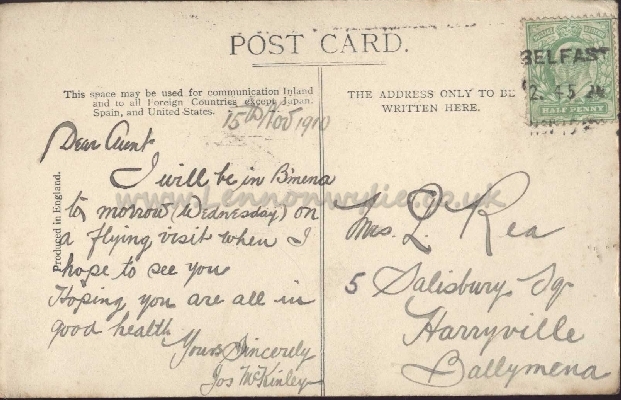 POST CARD.
This space may be used for communication Inland
and to all Foreign Countries except Japan,
Spain, and United States.
15th Nov 1910
Dear Aunt
I will be in B'mena
to morrow (Wednesday) on
a flying visit when I
hope to see you
Hoping you are all in
good health
Yours Sincerely
Jos McKinley
Produced in England.
THE ADDRESS ONLY TO BE
WRITTEN HERE.
BELFAST
HALF PENNY
Mrs. Rea
5 Salisbury Sq.
Harryville
Ballymena
www.lennonwylie.co.uk